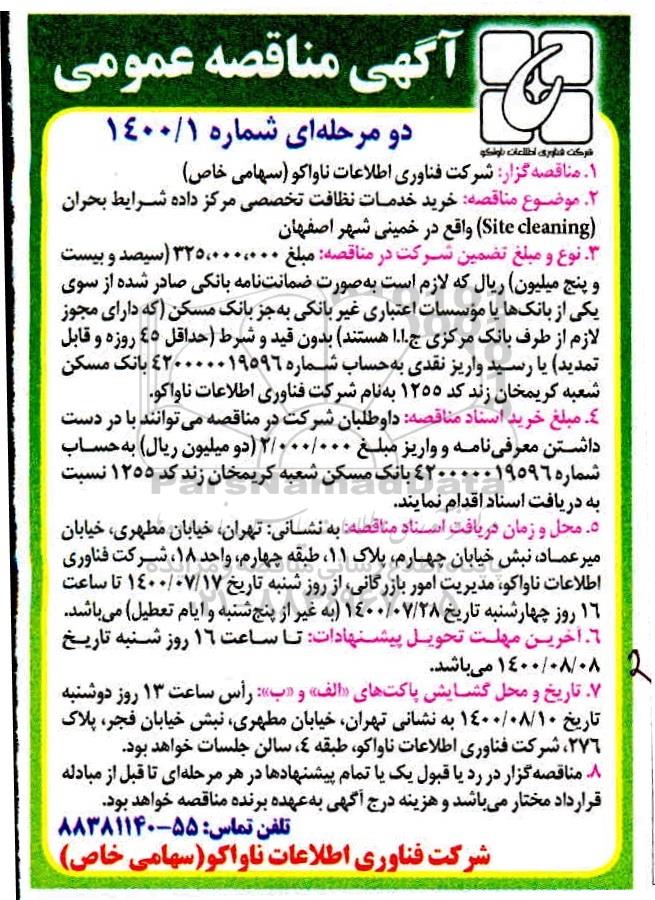 آگهی مناقصه عمومی
شرکت فناوری اطلاعات ناواکو
دو مرحله‌ای شماره ۱۴۰۰/۱
۱. مناقصه‌گزار: شرکت فناوری اطلاعات ناواکو (سهامی خاص)
۲. موضوع مناقصه: خرید خدمات نظافت تخصصی مرکز داده شرایط بحران
(Site cleaning) واقع در خمینی شهر اصفهان
۳. نوع و مبلغ تضمین شرکت در مناقصه: مبلغ ۳۲۵,۰۰۰,۰۰۰ (سیصد و بیست
و پنج میلیون) ریال که لازم است به‌صورت ضمانت‌نامه بانکی صادر شده از سوی
یکی از بانک‌ها یا مؤسسات اعتباری غیر بانکی به‌جز بانک مسکن (که دارای مجوز
لازم از طرف بانک مرکزی ج.ا.ا هستند) بدون قید و شرط (حداقل ۴۵ روزه و قابل
تمدید) یا رسید واریز نقدی به‌حساب شماره ۴۲۰۰۰۰۰۱۹۵۹۶ بانک مسکن
شعبه کریمخان زند کد ۱۲۵۵ به‌نام شرکت فناوری اطلاعات ناواکو.
۴. مبلغ خرید اسناد مناقصه: داوطلبان شرکت در مناقصه می‌توانند با در دست
داشتن معرفی‌نامه و واریز مبلغ ۲/۰۰۰/۰۰۰ (دو میلیون ریال) به‌حساب
شماره ۴۲۰۰۰۰۰۱۹۵۹۶ بانک مسکن شعبه کریمخان زند کد ۱۲۵۵ نسبت
به دریافت اسناد اقدام نمایند.
ParsNamadData
۵. محل و زمان دریافت اسناد مناقصه: به نشانی: تهران، خیابان مطهری، خیابان
میرعماد، نبش خیابان چهارم، پلاک ۱۱، طبقه چهارم، واحد ۱۸، شرکت فناوری
اطلاعات ناواکو، مدیریت امور بازرگانی، از روز شنبه تاریخ ۱۴۰۰/۰۷/۱۷ تا ساعت
۱۶ روز چهارشنبه تاریخ ۱۴۰۰/۰۷/۲۸ (به غیر از پنج‌شنبه و ایام تعطیل) می‌باشد.
۶. آخرین مهلت تحویل پیشنهادات: تا ساعت ۱۶ روز شنبه تاریخ
۱۴۰۰/۰۸/۰۸ می‌باشد.
2
۷. تاریخ و محل گشایش پاکت‌های «الف» و «ب»: رأس ساعت ۱۳ روز دوشنبه
تاریخ ۱۴۰۰/۰۸/۱۰ به نشانی تهران، خیابان مطهری، نبش خیابان فجر، پلاک
۲۷۶، شرکت فناوری اطلاعات ناواکو، طبقه ۴، سالن جلسات خواهد بود.
۸. مناقصه‌گزار در رد یا قبول یک یا تمام پیشنهادها در هر مرحله‌ای تا قبل از مبادله
قرارداد مختار می‌باشد و هزینه درج آگهی به‌عهده برنده مناقصه خواهد بود.
تلفن تماس: ۵۵-۸۸۳۸۱۱۴۰
شرکت فناوری اطلاعات ناواکو (سهامی خاص)